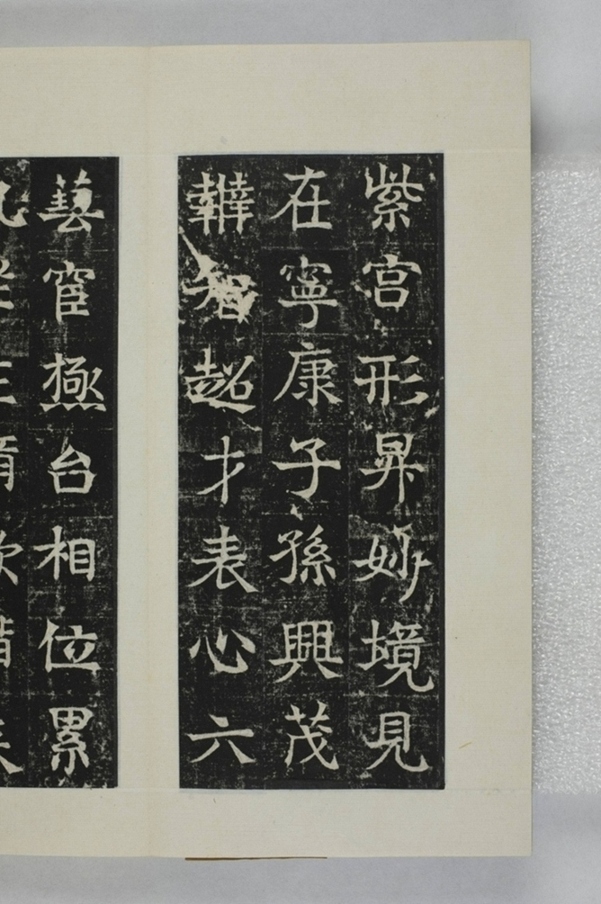 紫宮形昇妙境見
在寧康子孫興茂
辯智超才表心六
藝宦極台相位累